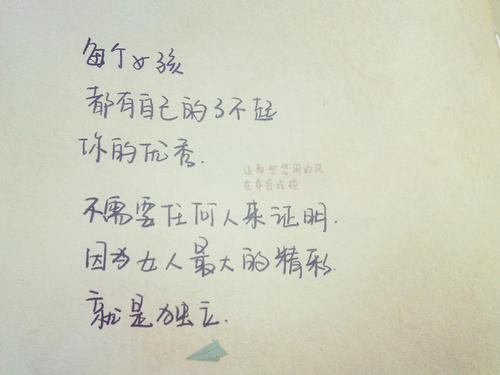 每个女孩
都有自己的了不起
你的优秀.
让那些悠闲的风
在身后成诗
不需要任何人来证明.
因为女人最大的精彩.
就是独立.